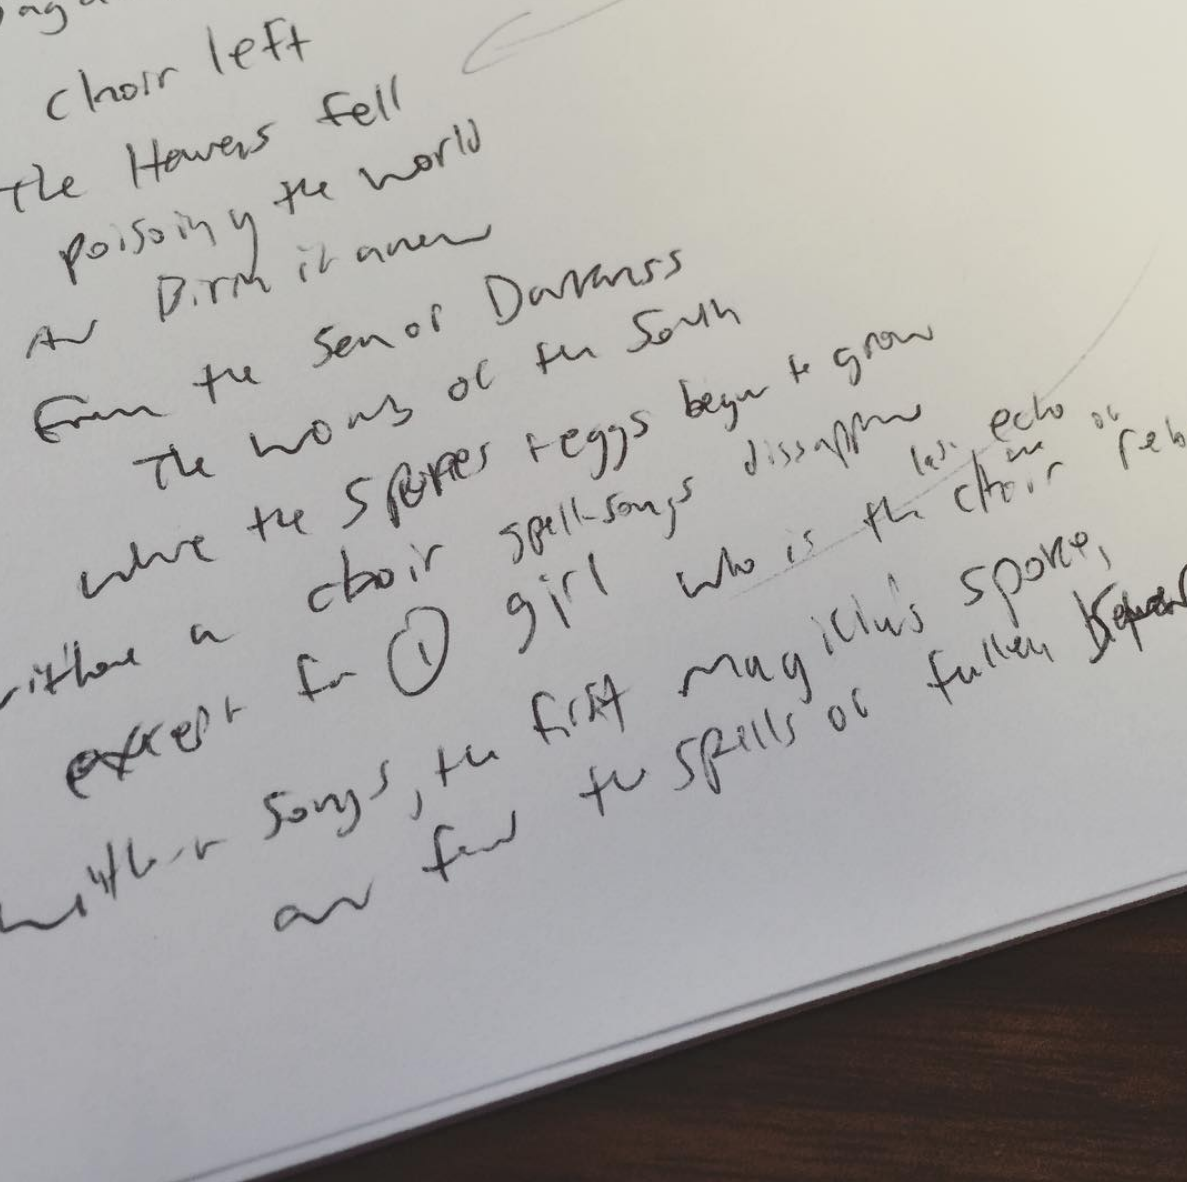 choir left
the Howers fell
poisoing the world
Birth it anew
From the sea of Darknss
The womb of the South
where the spores + eggs begin to grow
without a choir spell-songs dissappear
except for 1 girl who is the last echo of
the choir reb
without songs, the first magicians spoke,
and find the spells of fallen